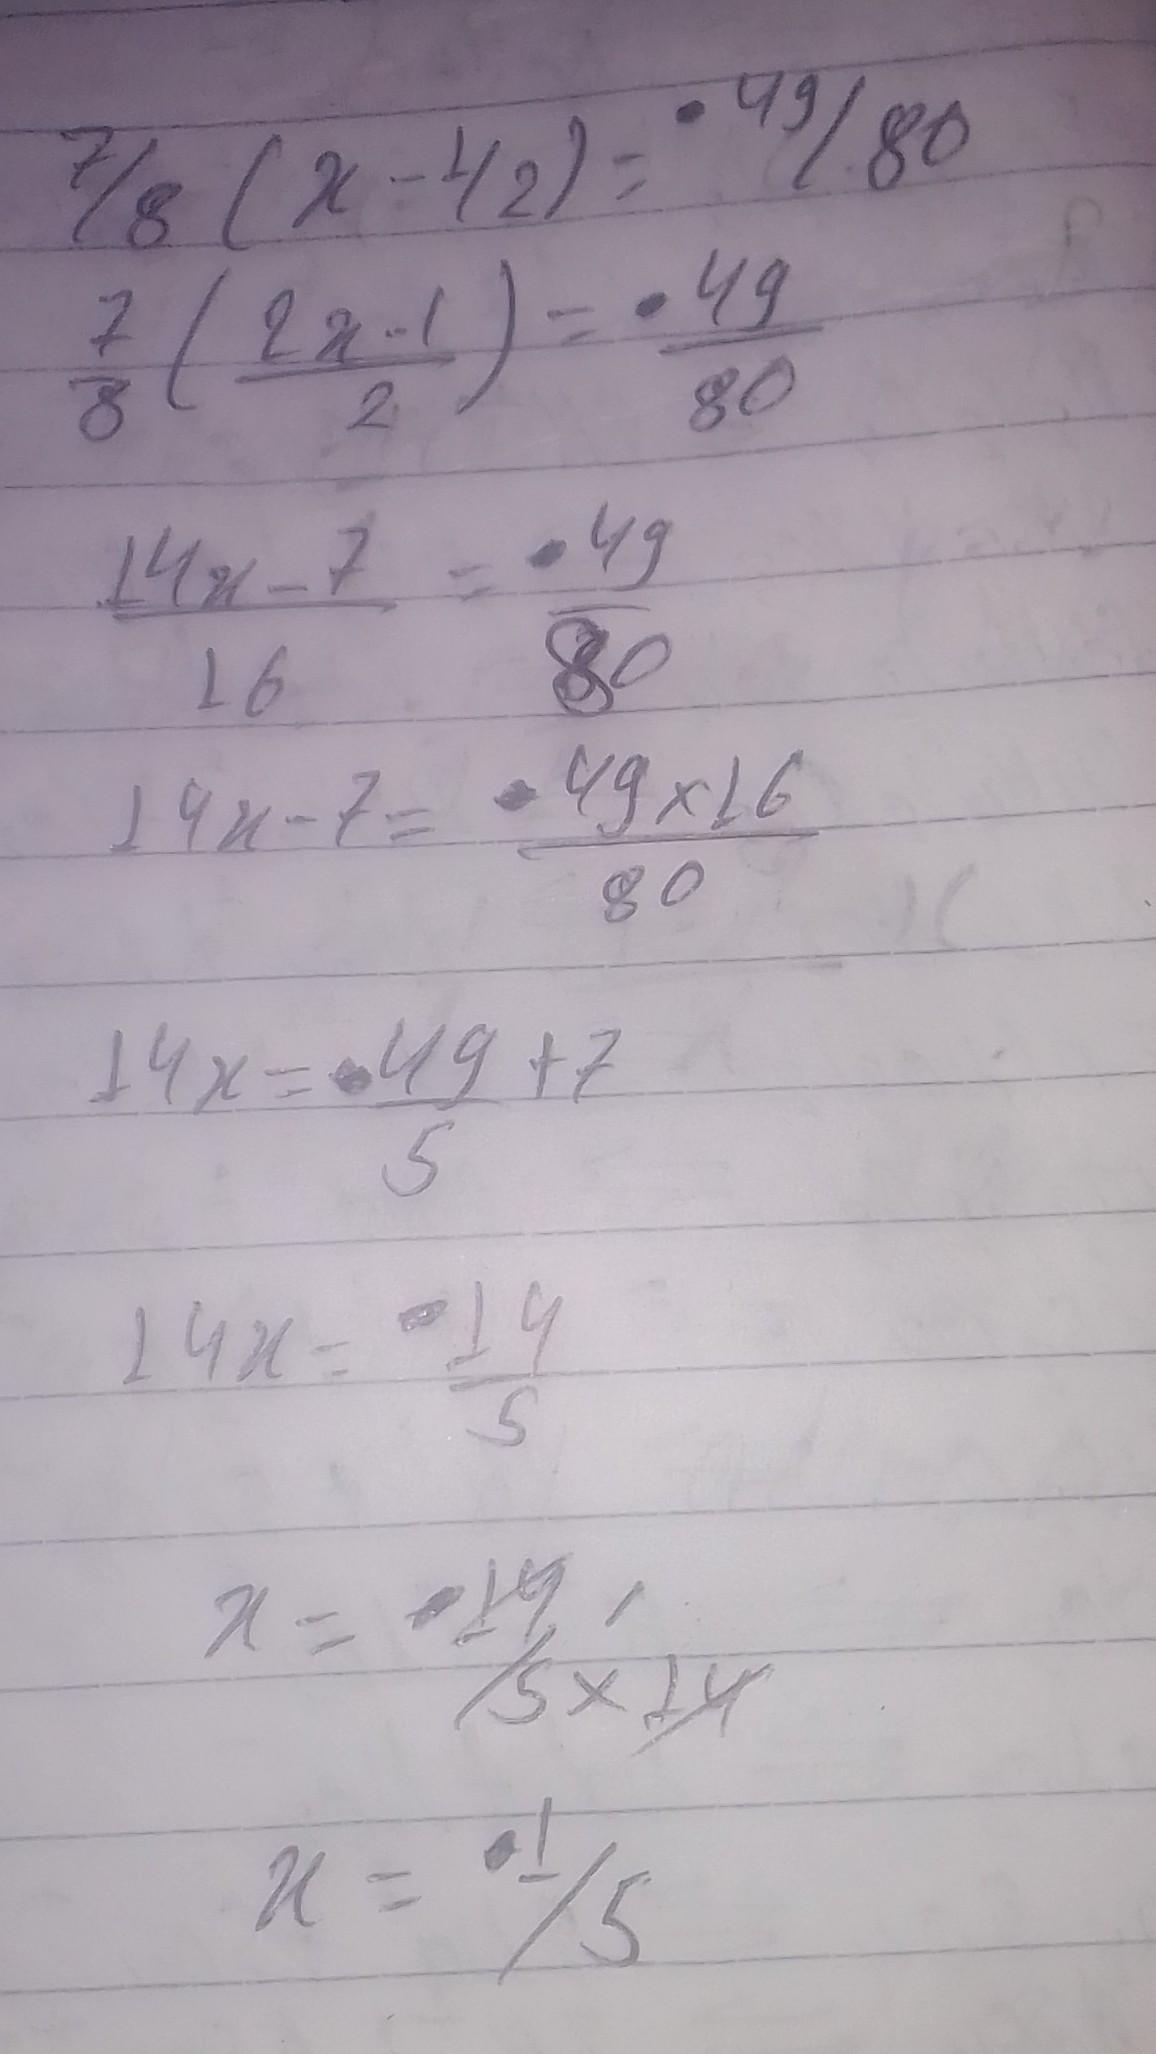 7/8 (x - 1/2) = • 49/80
7/8 ((2x - 1)/2) = • 49/80
(14x - 7)/16 = • 49/80
14x - 7 = • (49 × 16)/80
14x = • 49/5 + 7
14x = • 14/5
x = • 14/(5 × 14)
x = • 1/5